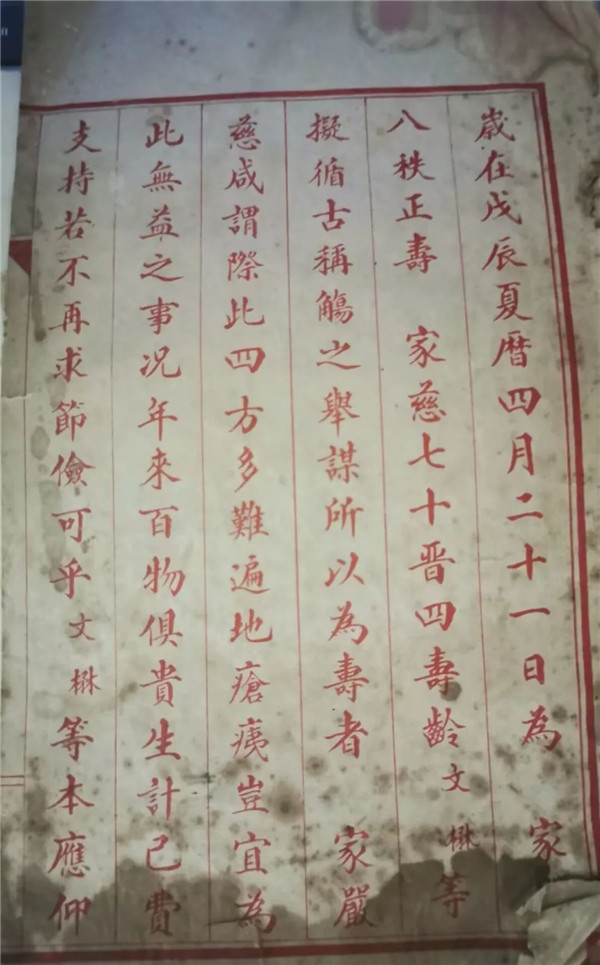 歲在戊辰夏曆四月二十一日為 家
八秩正壽 家慈七十晋四壽齡文楙等
擬循古稱觴之舉謀所以為壽者 家嚴
慈咸謂際此四方多難遍地瘡痍豈宜為
此無益之事况年來百物俱貴生計已費
支持若不再求節儉可乎文楙等本應仰